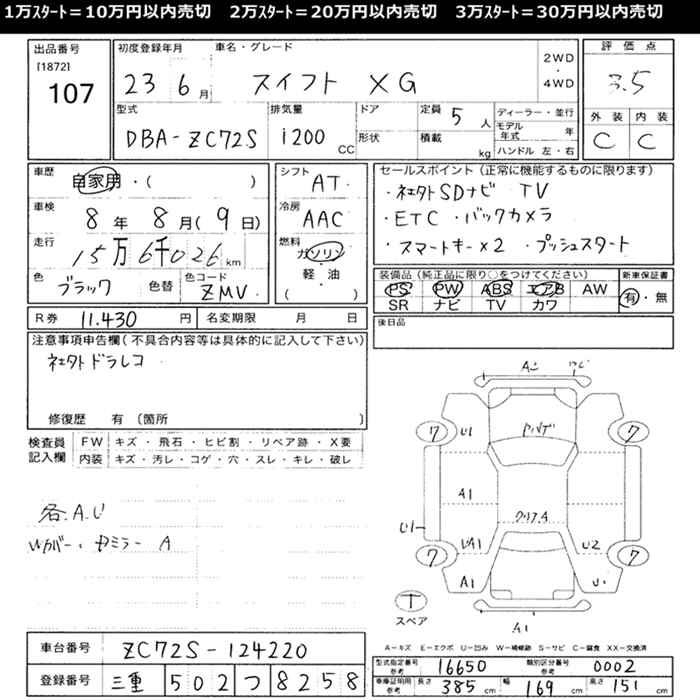 1万ｽﾀｰﾄ＝10万円以内売切　2万ｽﾀｰﾄ＝20万円以内売切　3万ｽﾀｰﾄ＝30万円以内売切
出品番号 初度登録年月 車名・グレード 2WD・4WD 評価点
[1872]
107 23 6月 スイフト XG 3.5
型式 排気量 ドア 定員 5人 ディーラー・並行 外装 内装
DBA-ZC72S 1200 CC 形状 積載 kg モデル年式 年 C C
ハンドル 左・右
車歴 自家用・( ) シフト AT セールスポイント（正常に機能するものに限ります）
車検 8年8月(9日) 冷房 AAC ・社外SDナビ TV
・ETC ・バックカメラ
走行 15万6千026km 燃料 ガソリン 軽・油 ( ) ・スマートキー×2 ・プッシュスタート
色 ブラック 色替 色コード ZMV
装備品（純正品に限り○をつけてください） 新車保証書
PS PW ABS エアB AW 有・無
SR ナビ TV カワ
R券 11.430円 名変期限 月 日 後日品
注意事項申告欄（不具合内容等は具体的に記入して下さい）
社外ドラレコ
修復歴 有 〔箇所 〕
検査員記入欄 FW キズ・飛石・ヒビ割・リペア跡・X要
内装 キズ・汚レ・コゲ・穴・スレ・キレ・破レ
各A.U
Wカバー、セミラー A
7 U1 7
A1
U1
7 UA1 U2 7
A1 U1
T
スペア
A1
A－キズ E－エクボ U－凹み W－補修跡 S－サビ C－腐食 XX－交換済
車台番号 ZC72S-124220
型式指定番号 参考 16650 類別区分番号 参考 0002
登録番号 三重 502 つ 8258
車庫証明用 参考 長さ 385cm 幅 169cm 高さ 151cm